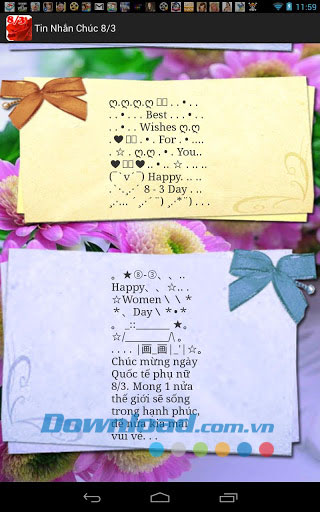 8/3
Tin Nhắn Chúc 8/3
11:59
ღ.ღ.ღ.ღ . . • . .
. . • . . . Best . . . • . .
. . • . . Wishes ღ.ღ
. ♥ . • . For . • ....
. ☆ . ღ.ღ . • . You..
♥ ♥ .. • .. ☆ .. ..
(¯`v´¯) Happy. .. ..
.`·.¸.·´ 8 - 3 Day . ..
¸.·.. ´¸.·´¨) ¸.·*¨) . . .
。★⑧-③、、..
Happy、、☆.. .
☆Women \ \ *
*、Day \ *•*
。_::______★。
☆/_______/\。
. . . . |画_画|_'|☆。
Chúc mừng ngày
Quốc tế phụ nữ
8/3. Mong 1 nửa
thế giới sẽ sống
trong hạnh phúc,
để nửa kia mãi
vui vẻ. . .
Download.com.vn